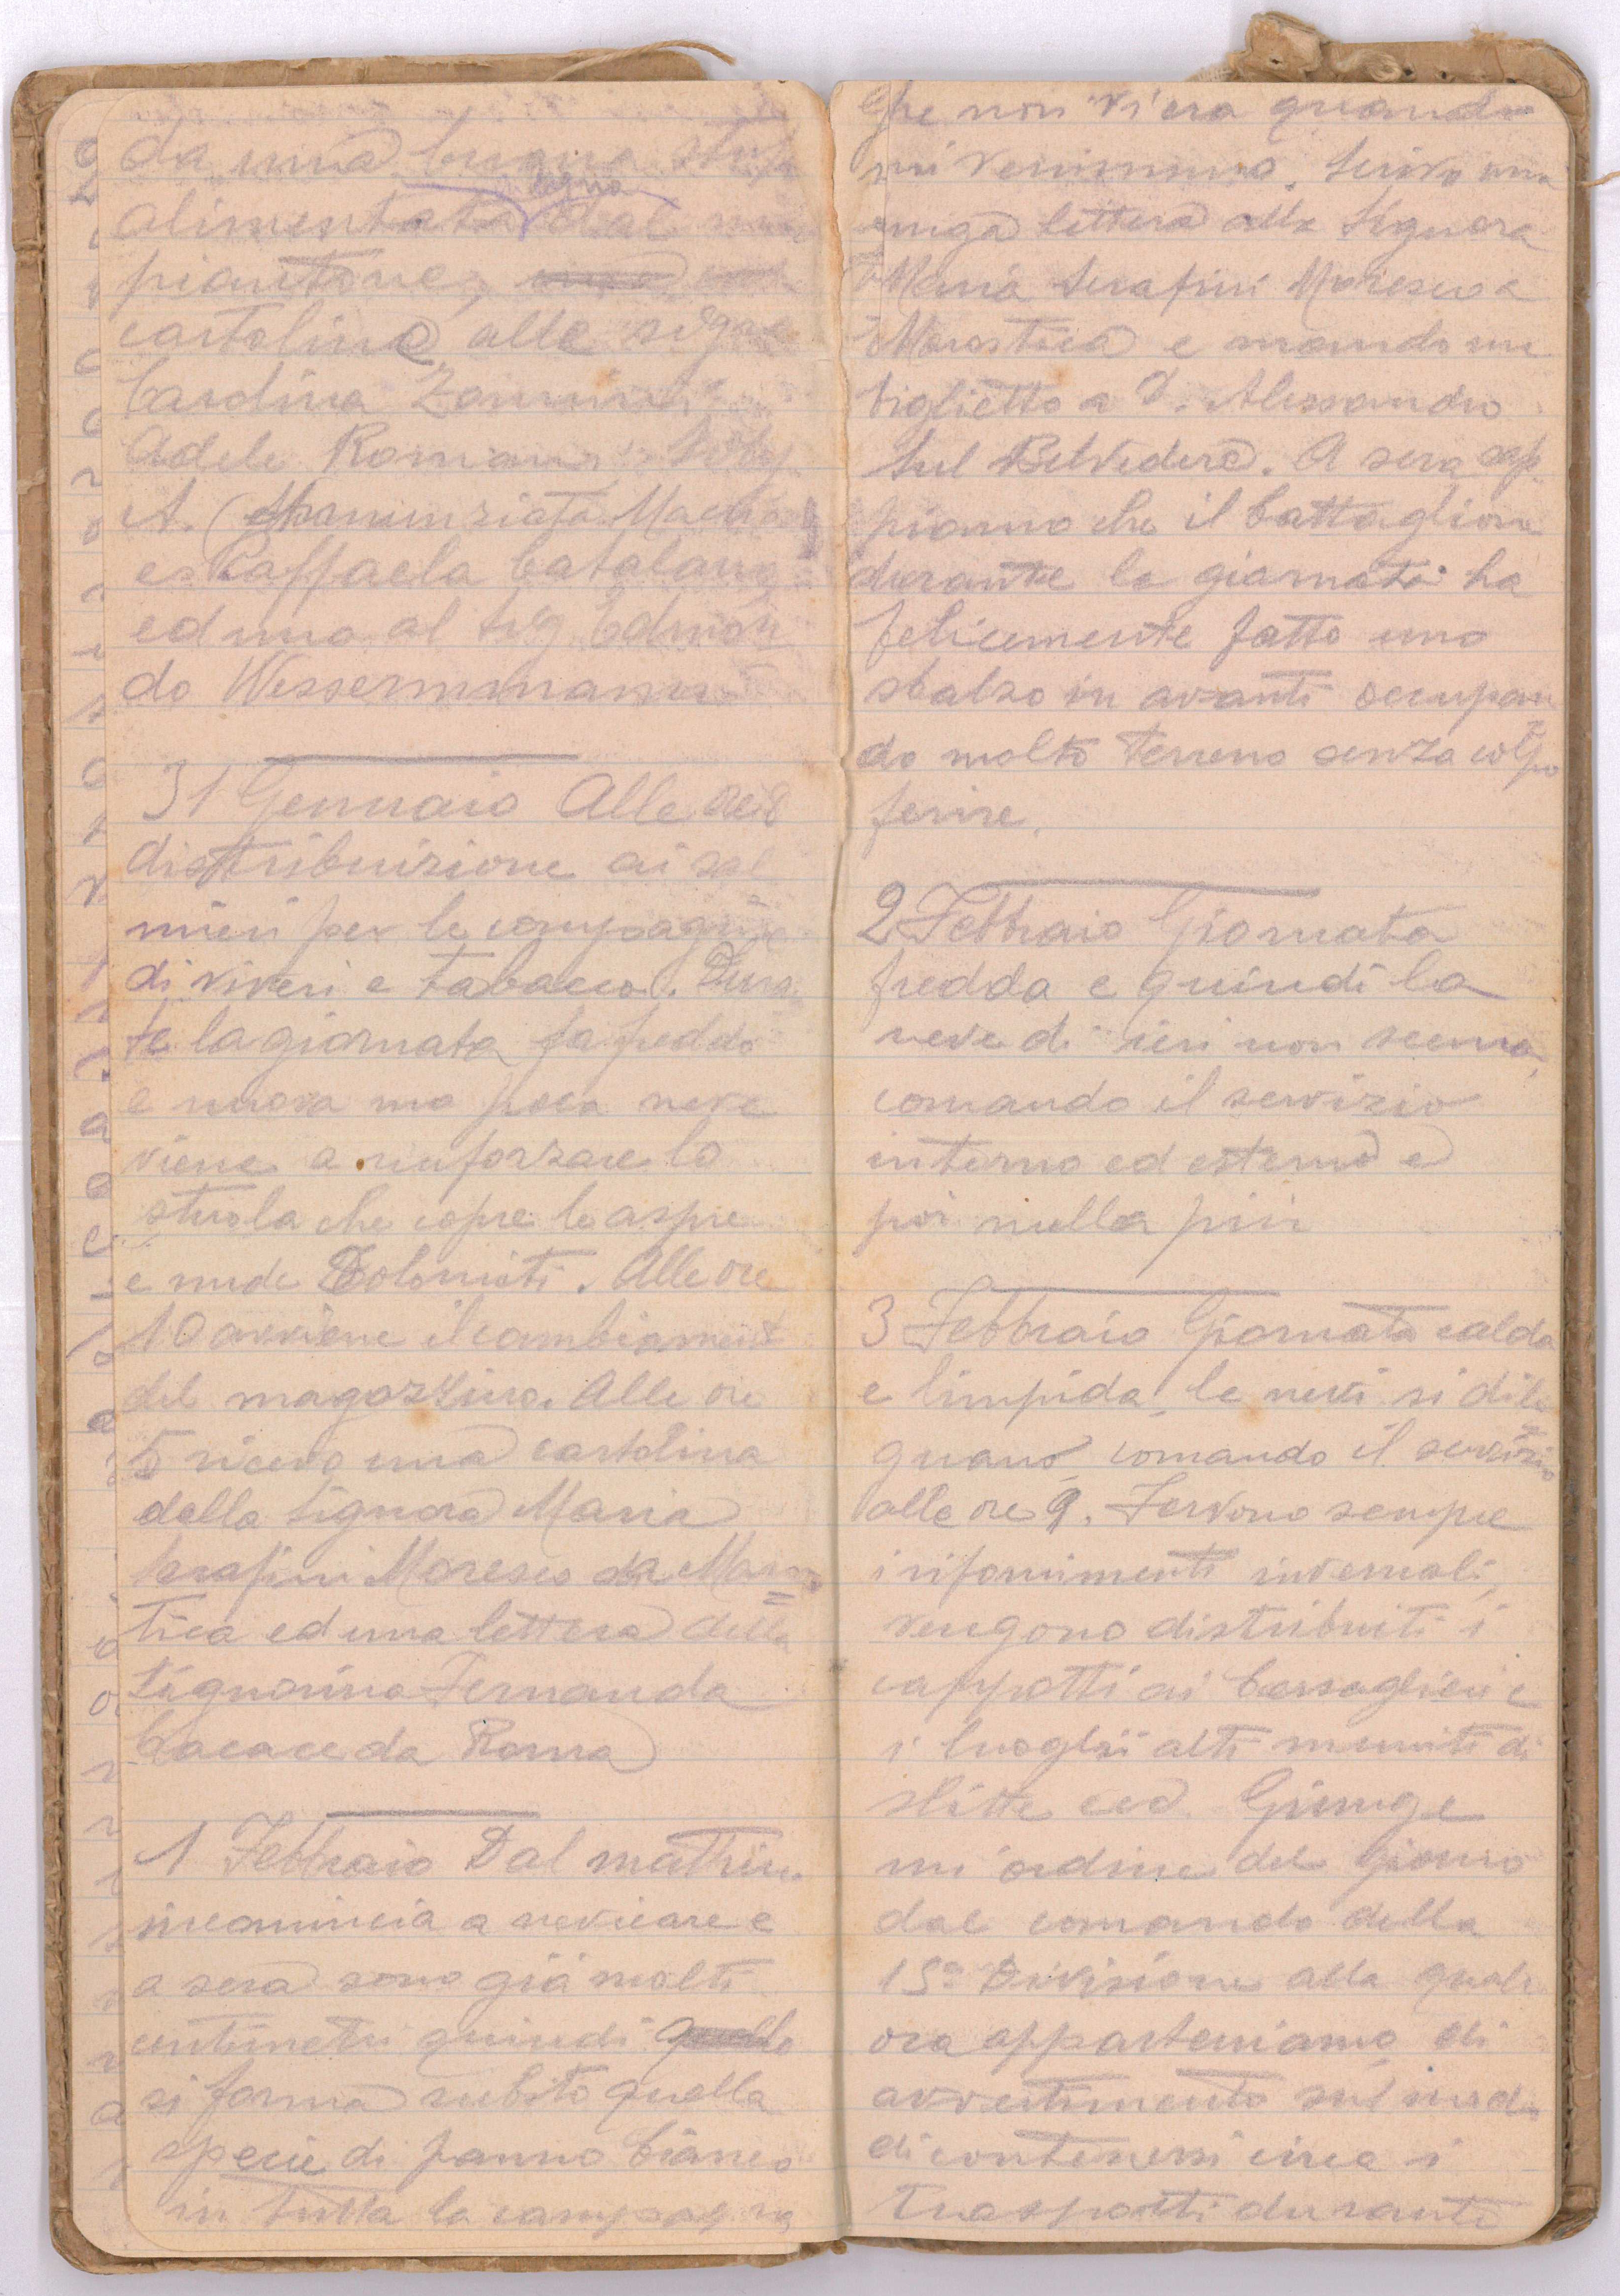 da una buona stufa
legna
alimentata dal mio
piantone,
cartolina alle sig.re
Carolina Zannini
Adele Romano
A. Annunziata
e Raffaela Catalano
ed una al sig Edmon
do Wessermmann
31 Gennaio Alle ore 8
distribuizione ai sal
mieri per le compagnie
di viveri e tabacco. Duran
te la giornata fa freddo
e nuova ma poca neve
viene a rinforzare lo
strola che copre le aspre
e nude Dolomiti. Alle ore
10 avviene il cambiament
del magazzino. Alle ore
5 ricevo una cartolina
della Signora Maria
Serafini Moresco da Maros
tica ed una lettera della
Signorina Fernanda
Cacace da Roma
1 Febbraio Dal mattino
incomincia a nevicare e
a sera sono già molti
centimetri quindi quello
si forma subito quella
specie di panno bianco
in tutta la campagna
che non v'era quando
vi venimmo. Scrivo una
lunga lettera alla Signora
Maria Serafini Moresco a
Marostica e mando un
biglietto a D. Alessandro
sul Belvedere. A sera sap
piamo che il battaglione
durante la giornata ha
felicemente fatto uno
sbalzo in avanti occupan
do molto terreno senza colpo
ferire.
2 Febbraio Giornata
fredda e quindi la
neve di ieri non scema,
comando il servizio
interno ed esterno e
poi nulla più
3 Febbraio Giornata calda
e limpida, le nevi si dile
guano, comando il servizio
alle ore 9. Fervono sempre
i rifornimenti invernali,
vengono distribuiti i
cappotti ai bersaglieri e
i luoghi alti muniti di
slitte ecc. Giunge
un ordine del giorno
dal comando della
15a Divisione alla quale
ora apparteniamo di
avvertimento sul modo
di contenersi circa i
trasporti durante